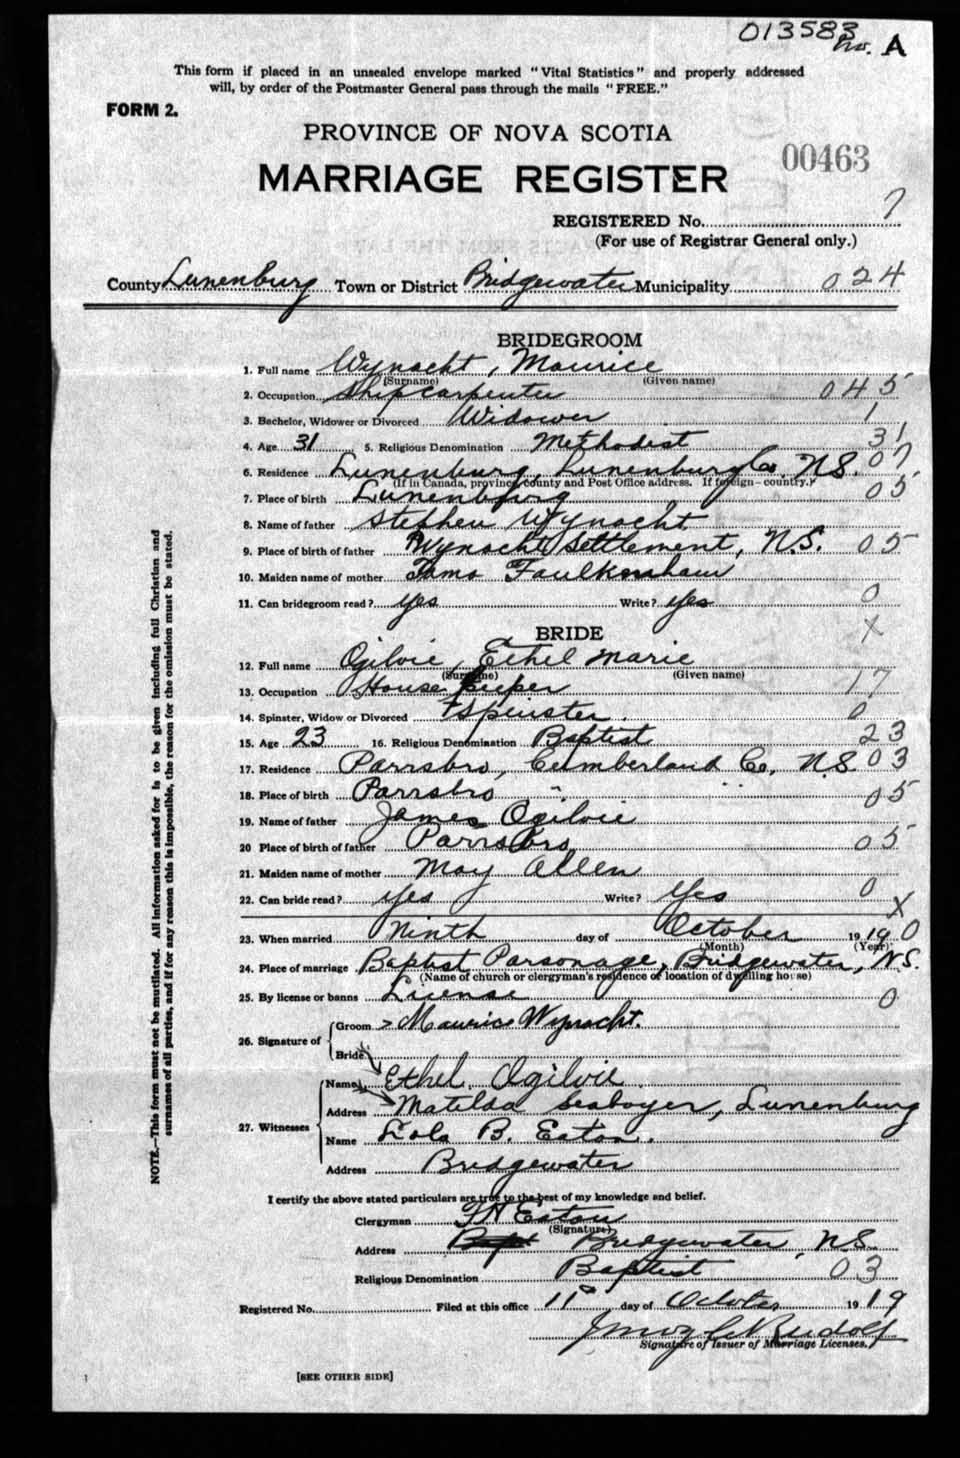 013583
No. A
This form if placed in an unsealed envelope marked "Vital Statistics" and properly addressed
will, by order of the Postmaster General pass through the mails "FREE."
FORM 2.
PROVINCE OF NOVA SCOTIA
00463
MARRIAGE REGISTER
REGISTERED No. 7
(For use of Registrar General only.)
County Lunenburg Town or District Bridgewater Municipality 024
BRIDEGROOM
1. Full name Wynacht, Maurice
(Surname) (Given name)
2. Occupation Ship carpenter 045
3. Bachelor, Widower or Divorced Widower 1
4. Age 31 5. Religious Denomination Methodist 31
6. Residence Lunenburg, Lunenburg Co. N.S. 07
(If in Canada, province, county and Post Office address. If foreign-country.)
7. Place of birth Lunenburg 05
8. Name of father Stephen Wynacht
9. Place of birth of father Wynacht Settlement, N.S. 05
10. Maiden name of mother Faulkenham
11. Can bridegroom read? yes Write? yes 0
BRIDE X
12. Full name Ogilvie, Ethel Marie
(Surname) (Given name)
13. Occupation House keeper 17
14. Spinster, Widow or Divorced Spinster 0
15. Age 23 16. Religious Denomination Baptist 23
17. Residence Parrsbro, Cumberland Co, N.S 03
18. Place of birth Parrsbro " " " 05
19. Name of father James Ogilvie
20 Place of birth of father Parrsbro 05
21. Maiden name of mother May Allen
22. Can bride read? yes Write? yes 0
X
23. When married Ninth day of October 1919 0
(Month) (Year)
24. Place of marriage Baptist Parsonage, Bridgewater, N.S.
(Name of church or clergyman's residence or location of dwelling house)
25. By license or banns License 0
26. Signature of Groom > Maurice Wynacht.
Bride
Name Ethel Ogilvie
27. Witnesses Address Matilda Seaboyer, Lunenburg
Name Lola B. Eaton.
Address Bridgewater
I certify the above stated particulars are true to the best of my knowledge and belief.
Clergyman F H Eaton
(Signature)
Address Bapt Bridgewater, N.S.
Religious Denomination Baptist 03
Registered No. Filed at this office 11 day of October 1919
Rudolf
Signature of Issuer of Marriage Licenses.
[SEE OTHER SIDE]
NOTE.—This form must not be mutilated. All information asked for is to be given including full Christian and
surnames of all parties, and if for any reason this is impossible, the reason for the omission must be stated.